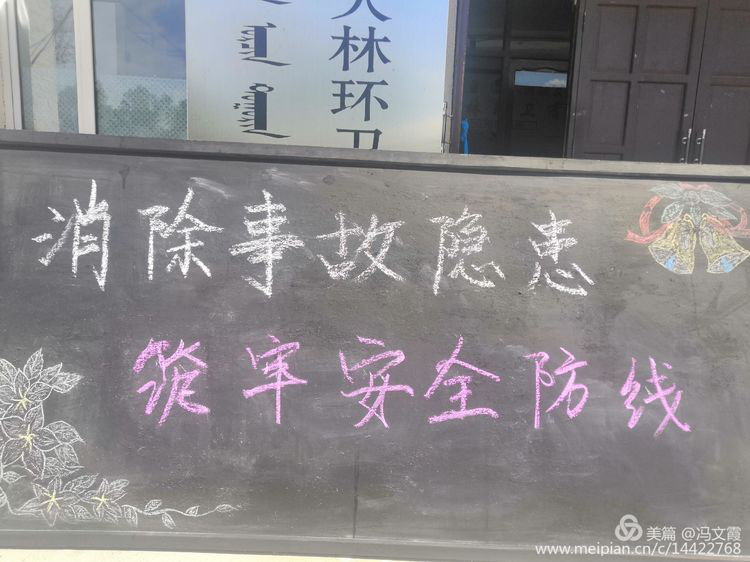 大林环卫
消除事故隐患
筑牢安全防线
美篇 @冯文霞
www.meipian.cn/c/14422768